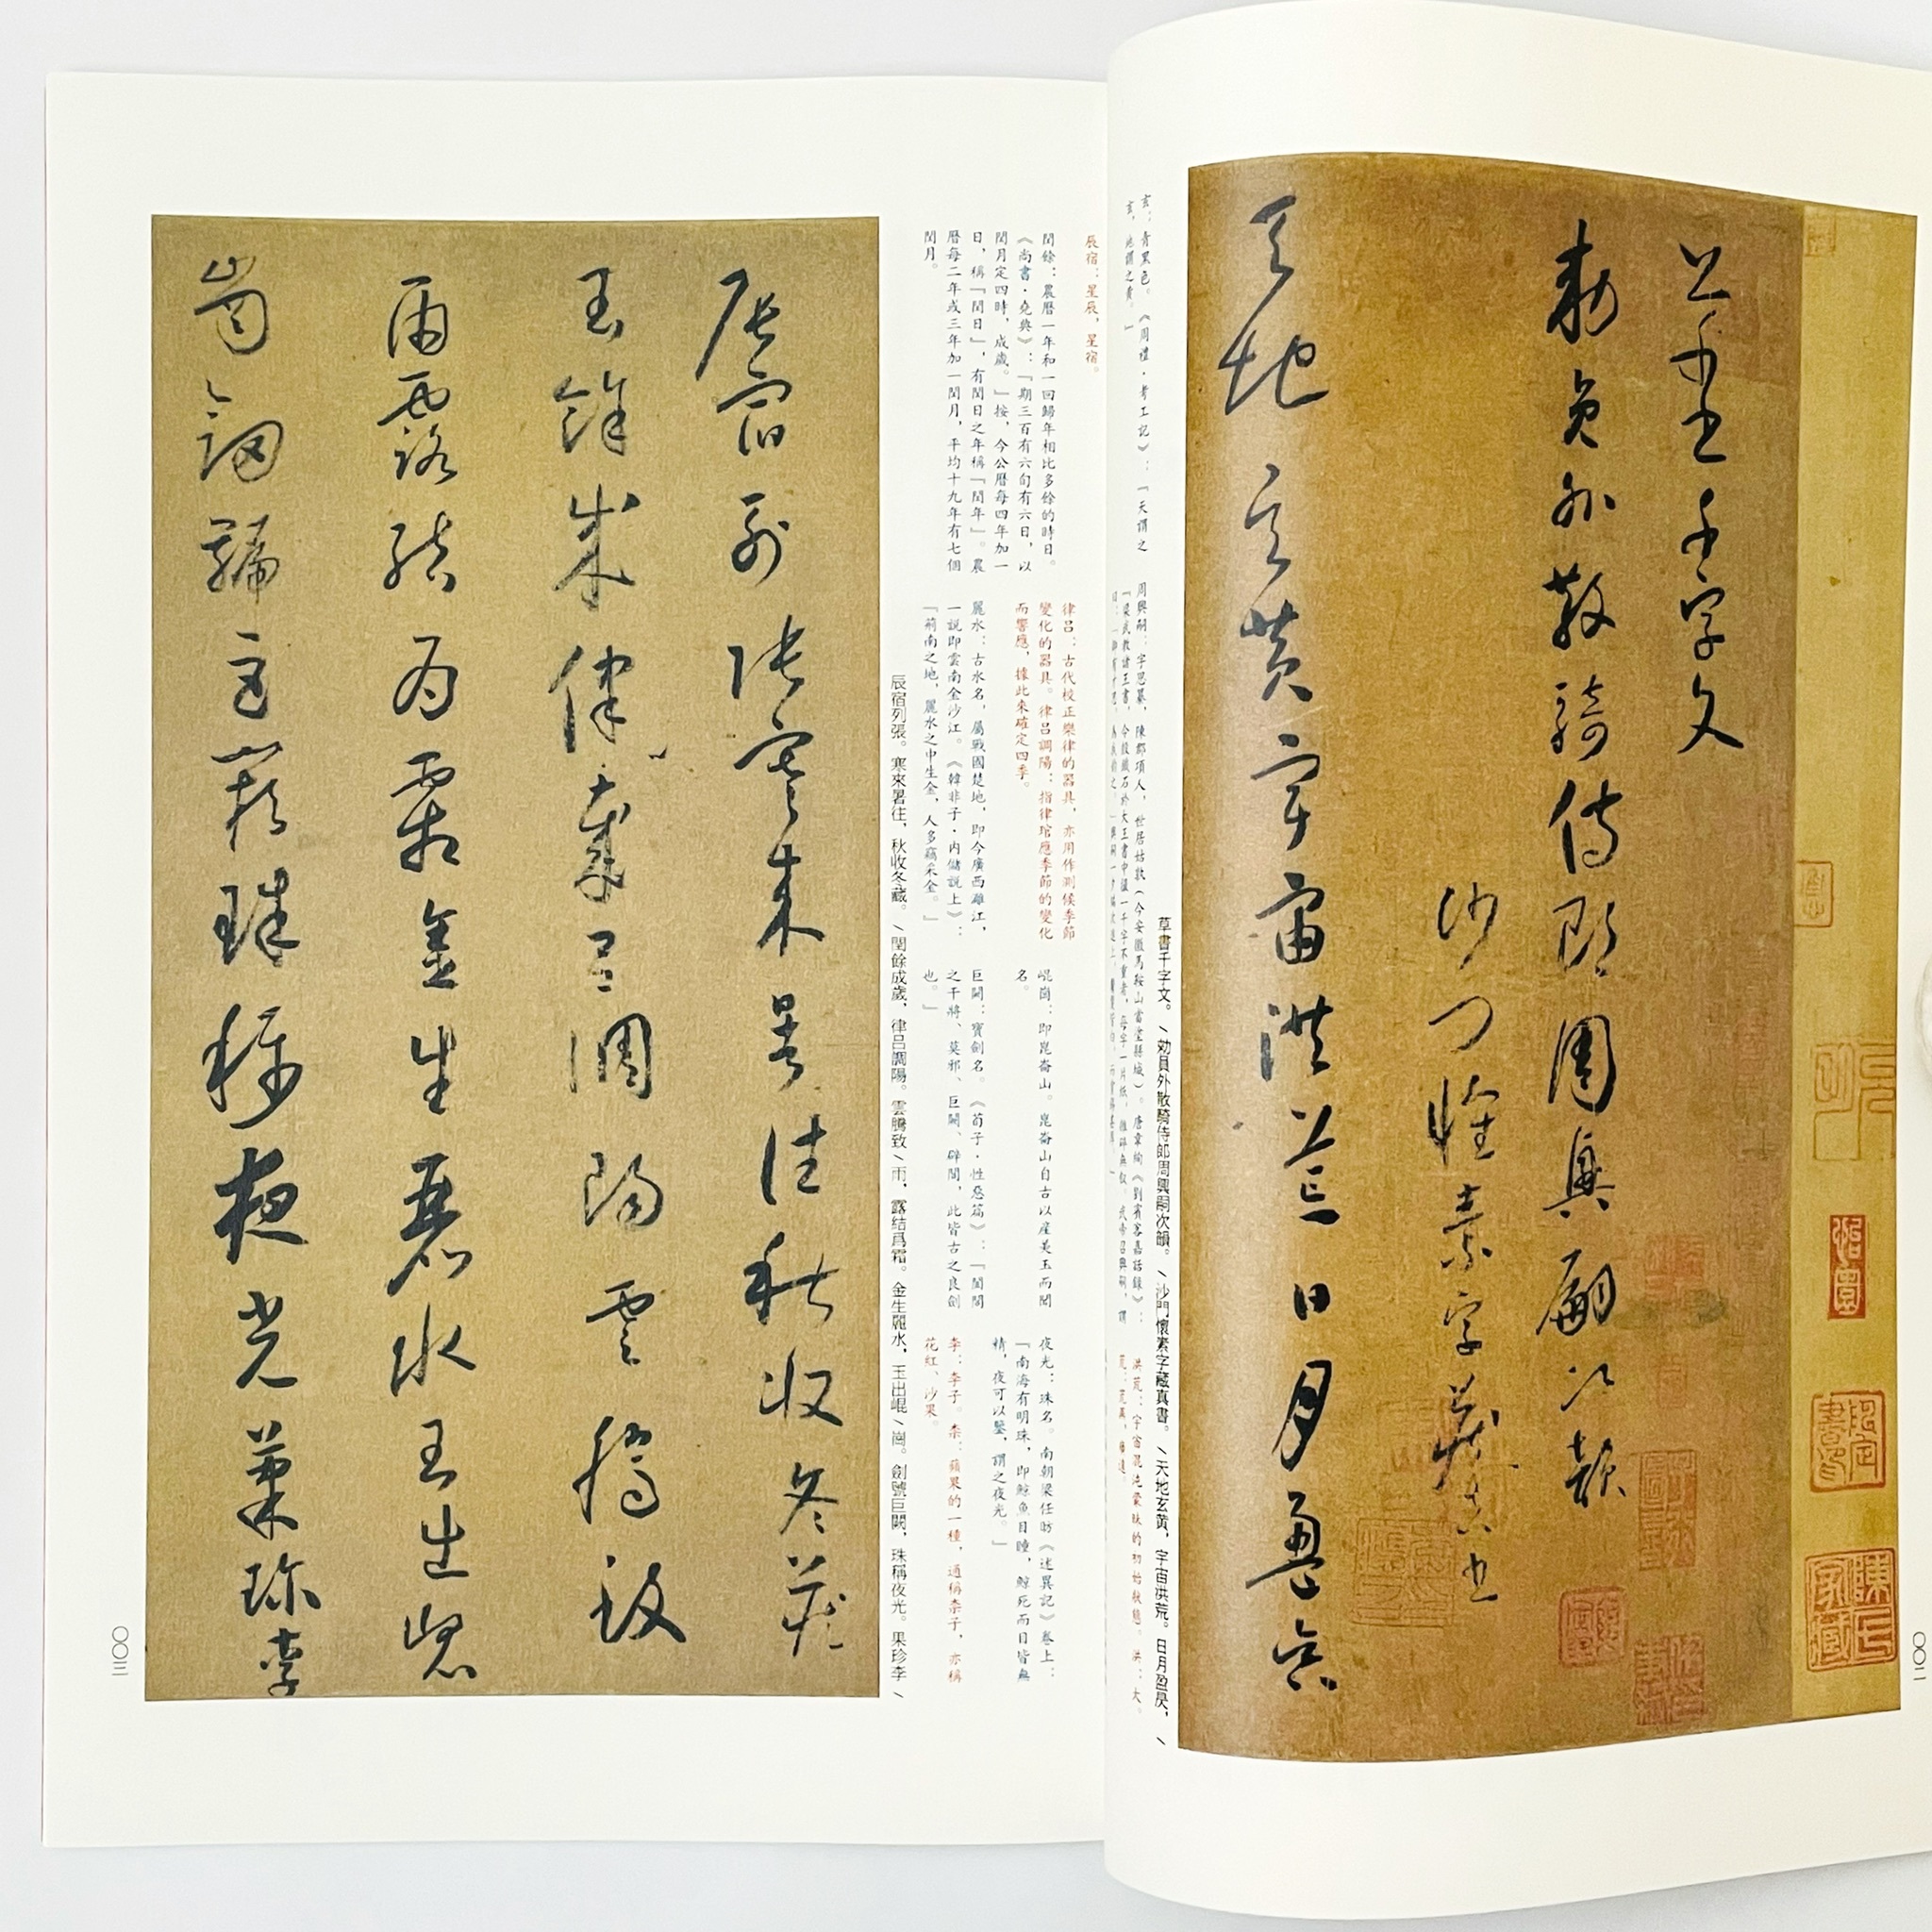 草書千字文
勑員外散騎侍郎周興嗣次韻
沙門懷素字藏真書
天地玄黃宇宙洪荒日月盈昃
玄：青黑色。《周禮·考工記》：「天謂之
玄，地謂之黃。」
周興嗣：字思纂，陳郡項人，世居姑孰（今安徽馬鞍山當塗縣城）。唐韋絢《劉賓客嘉話錄》：
洪荒：宇宙混沌蒙昧的初始狀態。洪：大。
草書千字文。〵勑員外散騎侍郎周興嗣次韻。〵沙門懷素字藏真書。〵天地玄黃，宇宙洪荒。日月盈昃，〵
〇〇二
辰宿列張寒來暑往秋收冬藏
閏餘成歲律呂調陽雲騰致
雨露結爲霜金生麗水玉出崐
崗劍號巨闕珠稱夜光菓珍李
辰宿：星辰，星宿。
閏餘：農曆一年和一回歸年相比多餘的時日。
《尚書·堯典》：「期三百有六旬有六日，以
閏月定四時，成歲。」按，今公曆每四年加一
日，稱「閏日」，有閏日之年稱「閏年」。農
曆每二年或三年加一閏月，平均十九年有七個
閏月。
律呂：古代校正樂律的器具，亦用作測候季節
變化的器具。律呂調陽：指律琯應季節的變化
而響應，據此來確定四季。
麗水：古水名，屬戰國楚地，即今廣西灕江，
一説即雲南金沙江。《韓非子·内儲説上》：
「荊南之地，麗水之中生金，人多竊采金。」
崐崗：即崑崙山。崑崙山自古以産美玉而聞
名。
巨闕：寶劍名。《荀子·性惡篇》：「闔閭
之干將、莫邪、巨闕、辟閭，此皆古之良劍
也。」
夜光：珠名。南朝梁任昉《述異記》卷上：
「南海有明珠，即鯨魚目瞳，鯨死而目皆無
精，夜可以鑒，謂之夜光。」
李：李子。柰：蘋果的一種，通稱柰子，亦稱
花紅、沙果。
辰宿列張。寒來暑往，秋收冬藏。〵閏餘成歲，律呂調陽。雲騰致〵雨，露結爲霜。金生麗水，玉出崐〵崗。劍號巨闕，珠稱夜光。果珍李〵
〇〇三